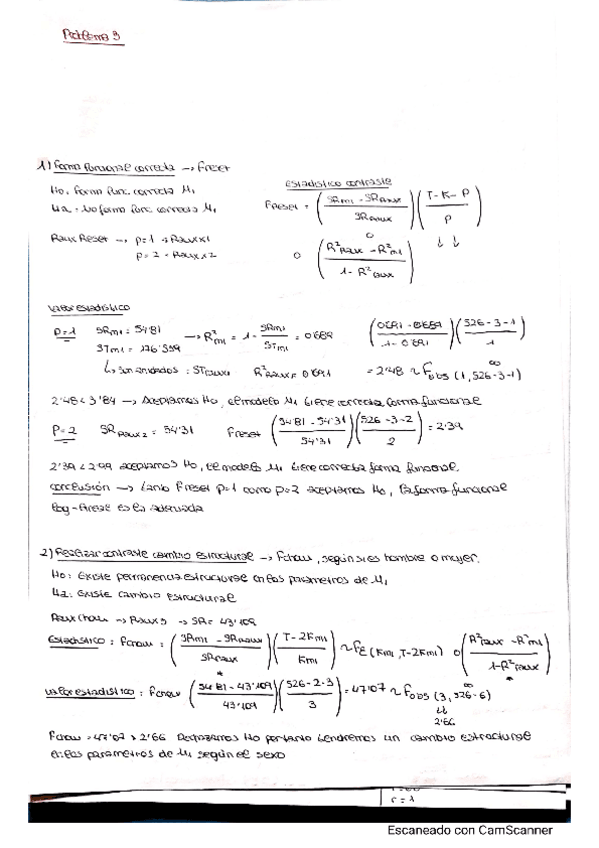 Problema 3
1) Forma funcional correcta → Freset
H0: Forma func. correcta M1
Ha: No forma func. correcta M1
Raux Reset → p=1 → Raux x1
p=2 → Raux x2
Estadístico contraste
Freset = ( SRm1 - SRaux / SRaux ) ( T-K-P / P )
o ( R²aux - R²m1 / 1 - R²aux ) ↓↓
Valor estadístico
P=1 SRm1 = 54'81 → R²m1 = 1 - SRm1 / STm1 = 0'689 ( 0'691 - 0'689 / 1 - 0'691 ) ( 526-3-1 / 1 )
STm1 = 176'359
R²aux = 0'691 = 2'48 ~ Fobs (1, 526-3-1)
2'48 < 3'84 → Aceptamos H0, el modelo M1 tiene correcta forma funcional
P=2 SRaux2 = 54'31 Freset ( 54'81 - 54'31 / 54'31 ) ( 526-3-2 / 2 ) = 2'39
2'39 < 2'99 aceptamos H0, el modelo M1 tiene correcta forma funcional.
conclusión → tanto Freset p=1 como p=2 aceptamos H0, la forma funcional
log-lineal es la adecuada
2) Realizar contraste cambio estructural → Fchow, según si es hombre o mujer.
H0: Existe permanencia estructural en los parámetros de M1
Ha: Existe cambio estructural
Raux Chow → Raux 3 → SR = 43'109
Estadístico: Fchow: ( SRm1 - SRaux / SRaux ) ( T-2Km1 / Km1 ) ~ F (Km1, T-2Km1) o ( R²aux - R²m1 / 1-R²aux )
Valor estadístico: Fchow ( 54'81 - 43'109 / 43'109 ) ( 526-2·3 / 3 ) = 47'07 ~ Fobs (3, 526-6)
2'66
Fchow = 47'07 > 2'66 Rechazamos H0 por tanto tendremos un cambio estructural
en los parámetros de M1 según el sexo
r = 1
Escaneado con CamScanner